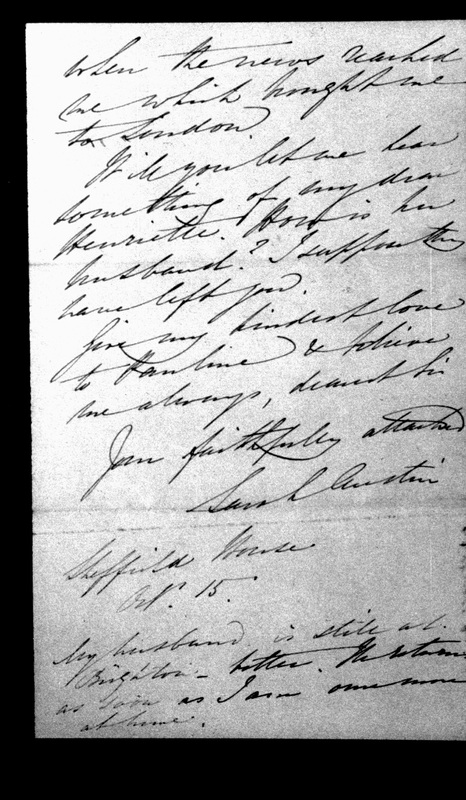 when the news reached
me which brought me
to London
Will you let me hear
something of my dear
Henriette. How is her
husband? I suppose they
have left you.
Give my kindest love
to Pauline & believe
me always, dearest Sir
Your faithfully attached
Sarah Austin
Sheffield House
Oct. 15.
My husband is still at
Brighton – better. He returns
as soon as I am once more
at home.